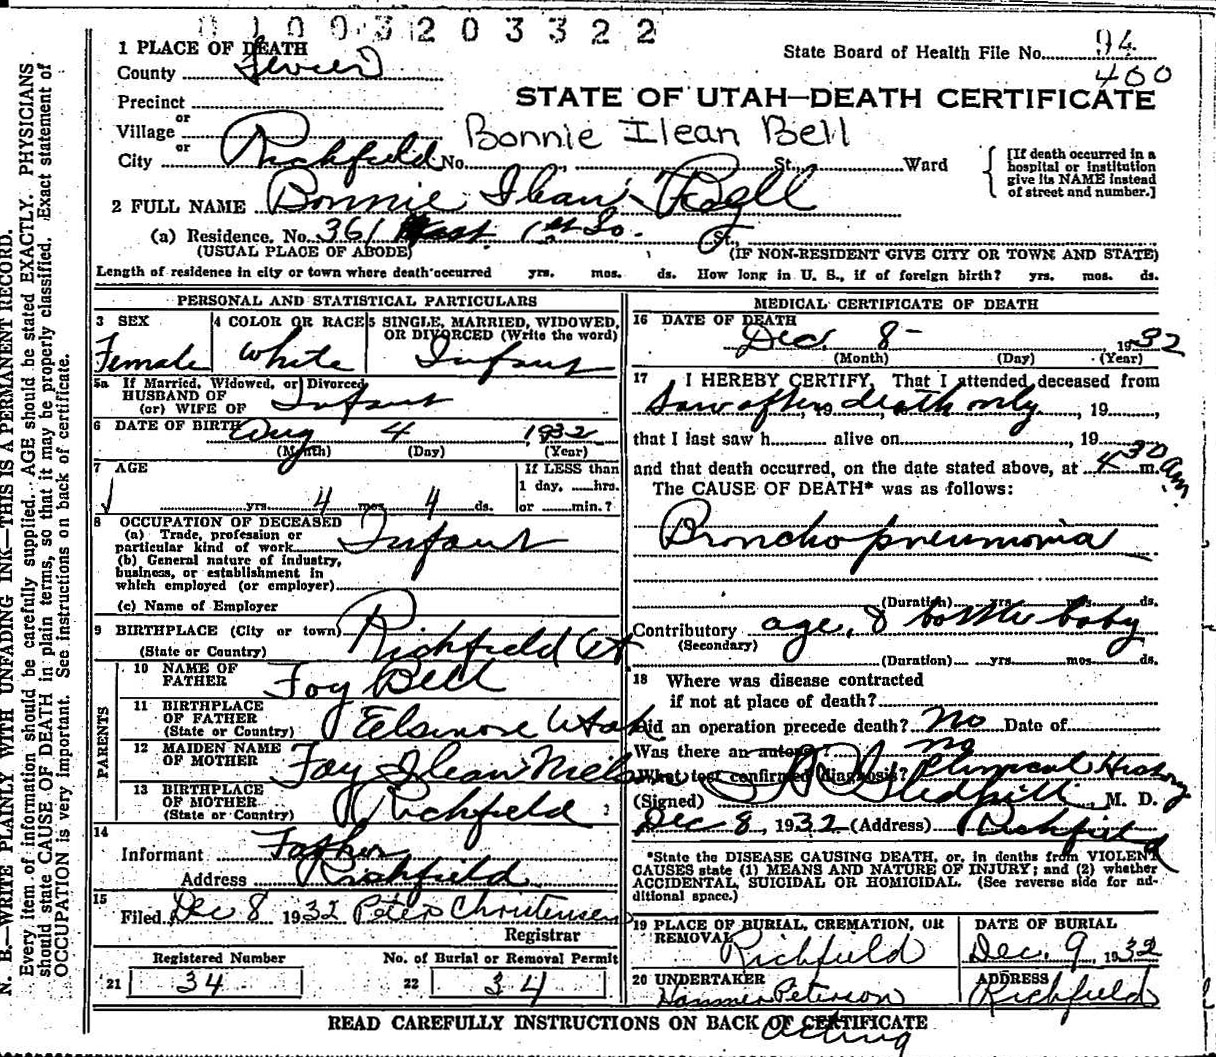 0100320 3322
1 PLACE OF DEATH
State Board of Health File No. 94
County Sevier
400
Precinct
STATE OF UTAH—DEATH CERTIFICATE
or
Village
Bonnie Ilean Bell
or
City Richfield No. St., Ward
[If death occurred in a hospital or institution give its NAME instead of street and number.]
2 FULL NAME Bonnie Ilean Bell
(a) Residence. No. 361 1st So. St.,
(USUAL PLACE OF ABODE) (IF NON-RESIDENT GIVE CITY OR TOWN AND STATE)
Length of residence in city or town where death occurred yrs. mos. ds. How long in U. S., if of foreign birth? yrs. mos. ds.
PERSONAL AND STATISTICAL PARTICULARS
3 SEX
Female
4 COLOR OR RACE
White
5 SINGLE, MARRIED, WIDOWED, OR DIVORCED (Write the word)
Infant
5a If Married, Widowed, or Divorced
HUSBAND OF
(or) WIFE OF Infant
6 DATE OF BIRTH Aug 4 1932
(Month) (Day) (Year)
7 AGE
yrs. 4 mos. 4 ds.
If LESS than
1 day, hrs.
or min.?
8 OCCUPATION OF DECEASED
(a) Trade, profession or
particular kind of work Infant
(b) General nature of industry,
business, or establishment in
which employed (or employer)
(c) Name of Employer
9 BIRTHPLACE (City or town)
(State or Country) Richfield Ut
PARENTS
10 NAME OF
FATHER Foy Bell
11 BIRTHPLACE
OF FATHER
(State or Country) Elsinore Utah
12 MAIDEN NAME
OF MOTHER Fay Ilean Nielson
13 BIRTHPLACE
OF MOTHER
(State or Country) Richfield
14
Informant Father
Address Richfield
15
Filed Dec 8 1932 Peter Christensen
Registrar
Registered Number
21 34
No. of Burial or Removal Permit
22 34
MEDICAL CERTIFICATE OF DEATH
16 DATE OF DEATH
Dec. 8- 1932
(Month) (Day) (Year)
17 I HEREBY CERTIFY, That I attended deceased from
Saw after death only, 19 ,
that I last saw h alive on , 19
and that death occurred, on the date stated above, at 4 30 m. am.
The CAUSE OF DEATH* was as follows:
Broncho pneumonia
(Duration) yrs. mos. ds.
Contributory age, & bottle baby
(Secondary)
(Duration) yrs. mos. ds.
18 Where was disease contracted
if not at place of death?
Did an operation precede death? No Date of
Was there an autopsy? no
What test confirmed diagnosis? Clinical History
(Signed) Gledhill, M. D.
Dec 8, 1932 (Address) Richfield
*State the DISEASE CAUSING DEATH, or, in deaths from VIOLENT
CAUSES state (1) MEANS AND NATURE OF INJURY; and (2) whether
ACCIDENTAL, SUICIDAL OR HOMICIDAL. (See reverse side for ad-
ditional space.)
19 PLACE OF BURIAL, CREMATION, OR
REMOVAL
Richfield
DATE OF BURIAL
Dec. 9 1932
20 UNDERTAKER
Peterson
ADDRESS
Richfield
READ CAREFULLY INSTRUCTIONS ON BACK OF CERTIFICATE
acting
N. B.—WRITE PLAINLY WITH UNFADING INK—THIS IS A PERMANENT RECORD.
Every item of information should be carefully supplied. AGE should be stated EXACTLY. PHYSICIANS
should state CAUSE OF DEATH in plain terms, so that it may be properly classified. Exact statement of
OCCUPATION is very important. See instructions on back of certificate.